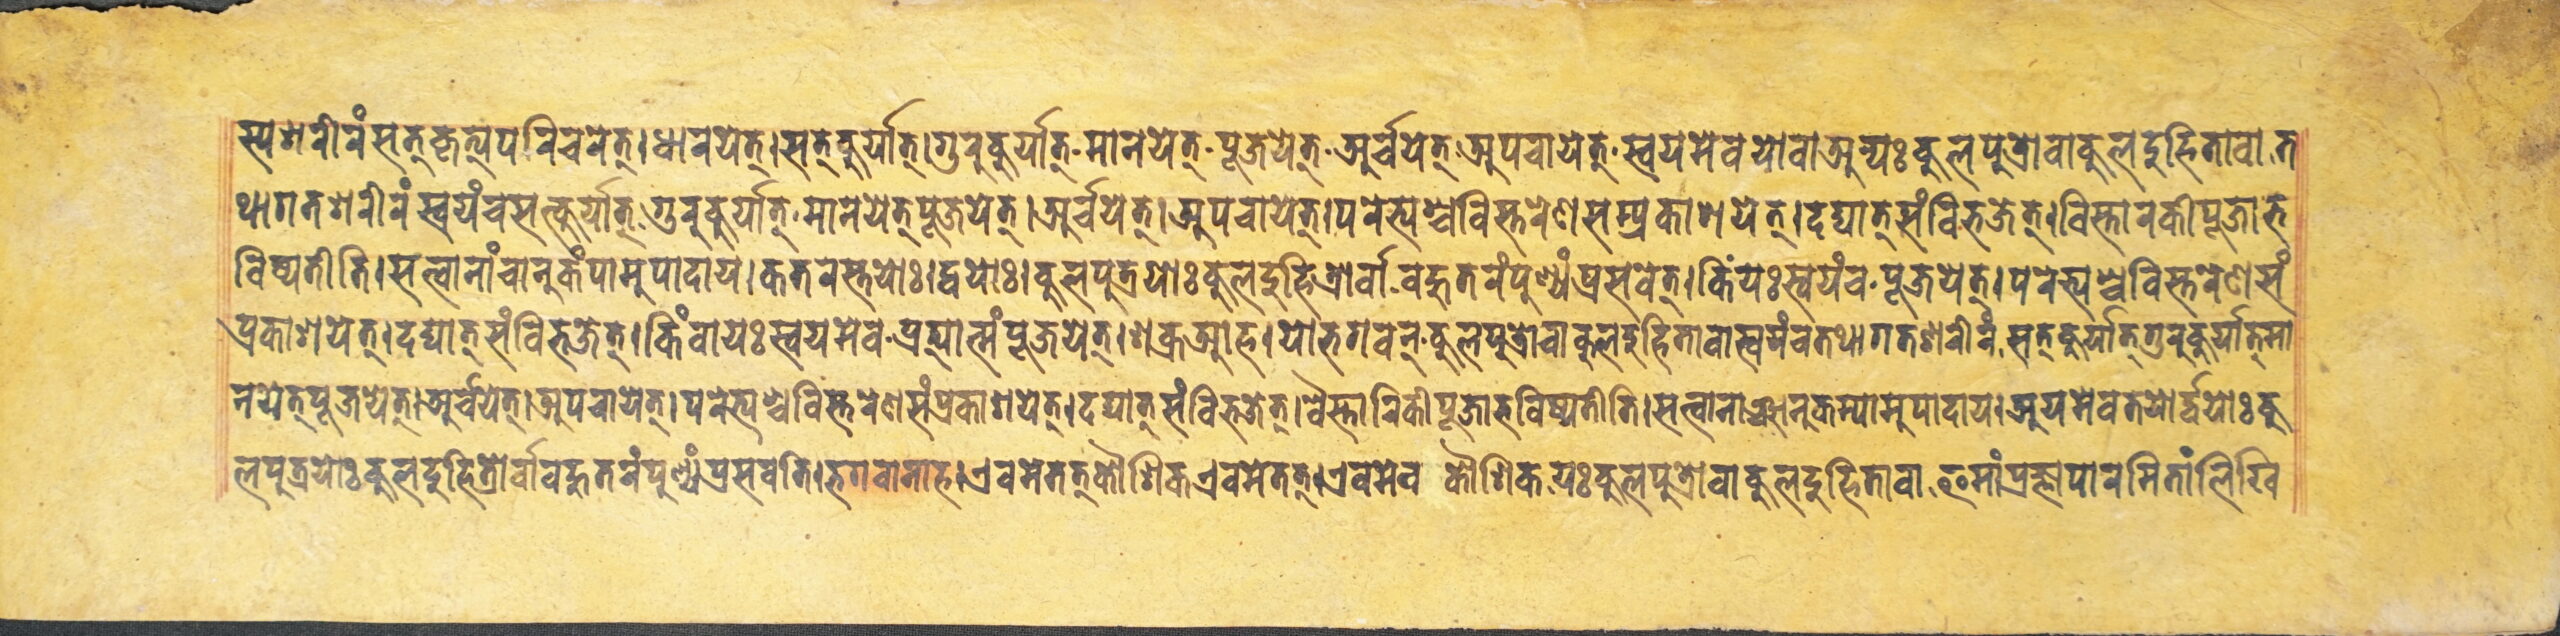 स्यशरीरंसत्कृत्यपरिचरेत्।धारयेत्।सत्कुर्यात्।गुरुकुर्यात्·मानयेत्·पूजयेत्·अर्चयेत्·अपचायेत्·स्वयमेवयोवाअन्यःकुलपुत्रोवाकुलदुहितावा·त
थागतशरीरंस्वयंचसत्कुर्यात्·गुरुकुर्यात्·मानयेत्पूजयेत्।अर्चयेत्।अपचायेत्।परेभ्यश्चविस्तरेणसम्प्रकाशयेत्।दद्यात्संविभजेत्।विस्तारकीपूजाभ
विष्यतीति।सत्वानांचानुकंपामुपादाय।कतरस्तयोः।द्वयोः।कुलपुत्रयोःकुलदुहित्रोर्वा·वहुतरंपुण्यंप्रसवेत्।किंयःस्वयंच·पूजयेत्।परेभ्यश्चविस्तरेणसं
प्रकाशयेत्।दद्यात्संविभजेत्।किंवायःस्वयमेव·प्रत्यात्मंपूजयेत्।शक्रआह।योभगवन्·कुलपुत्रोवाकुलदुहितावास्वयंचतथागतशरीरं·सत्कुर्यात्गुरुकुर्यात्मा
नयेत्पूजयेत्।अर्चयेत्।अपचायेत्।परेभ्यश्चविस्तरेणसंप्रकाशयेत्।दद्यात्संविभजेत्।वैस्तारिकीपूजाभविष्यतीति।सत्वानाञ्चानुकम्पामुपादाय।अयमेवतयोर्द्वयोःकु
लपुत्रयोःकुलदुहित्रोर्वावहुतरंपुण्यंप्रसवति।भगवानाह।एवमेतत्कौशिकएवमेतत्।एवमेव कौशिक·यःकुलपुत्रोवाकुलदुहितावा·इमांप्रज्ञापारमितांलिखि